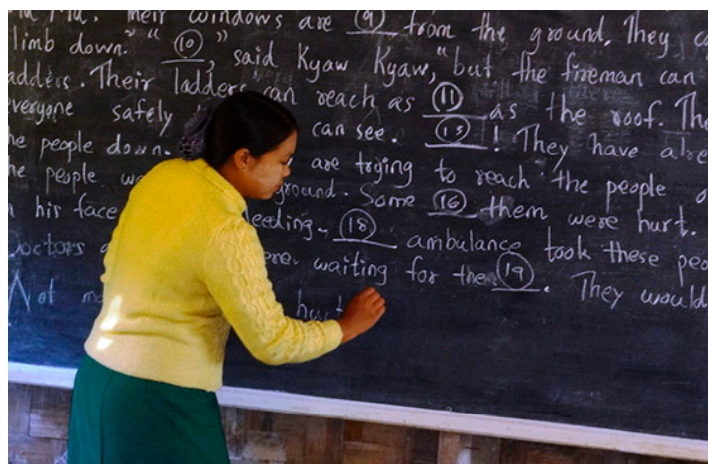 Their windows are (9) from the ground. They
limb down." "(10)", said Kyaw Kyaw, "but the fireman can
adders. Their ladders can reach as (11) as the roof. The
everyone safely can see. (15)! They have alre
he people down. are trying to reach the people o
he people ground. Some (16) them were hurt.
his face leeding. (18) ambulance took these peo
Doctors waiting for the (19). They would
Not hurt